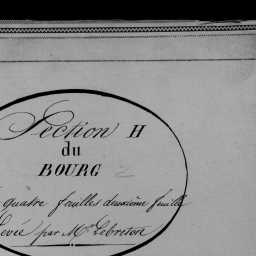 Section H
du
BOURG
quatre feuilles deuxième feuille
Levée par Mr Lebreton